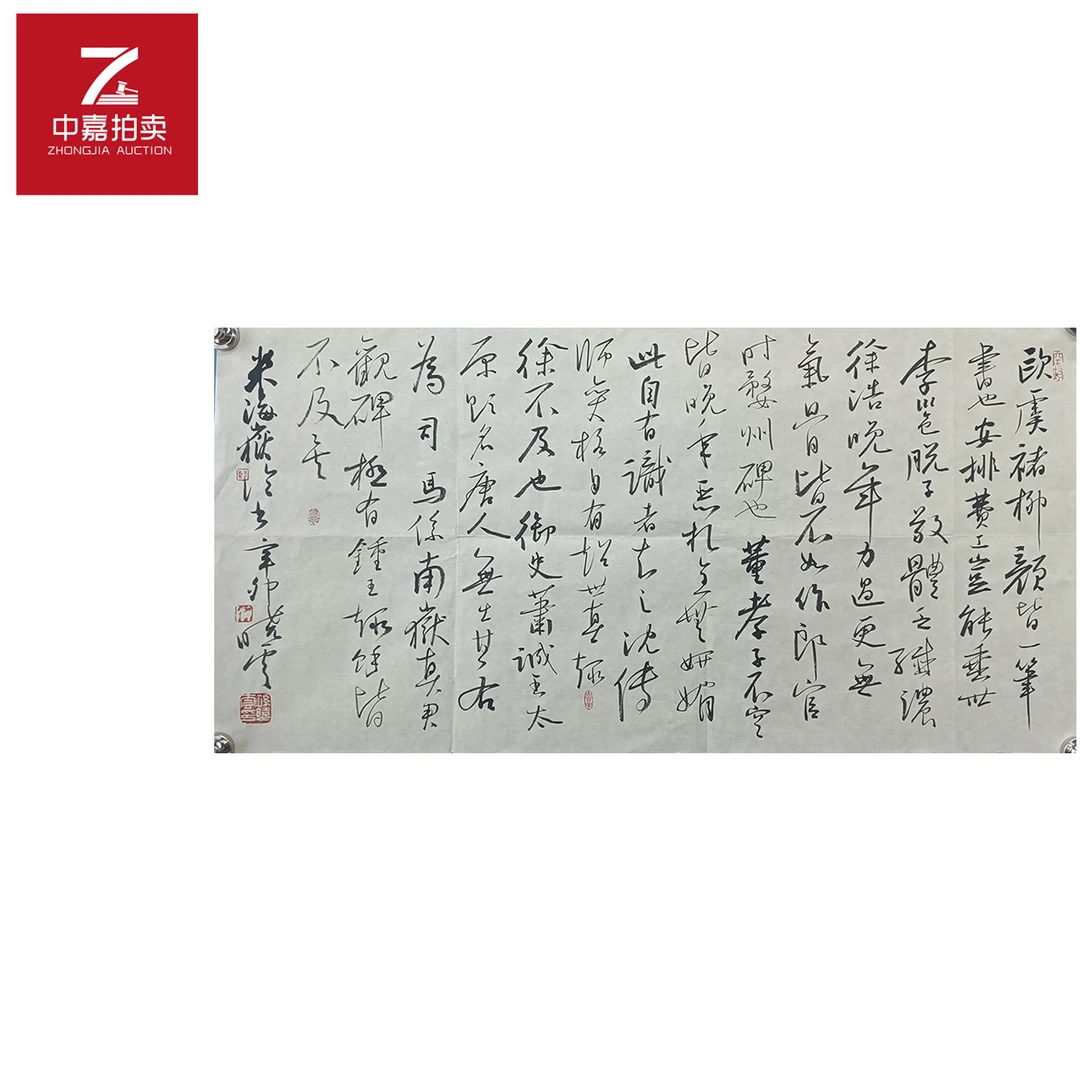 中嘉拍卖
ZHONGJIA AUCTION
歐虞褚柳顔皆一筆
書也安排費工豈能垂世
李邕脱子敬體乏纖濃
徐浩晚年力過更無
氣骨皆不如作郎官
时婺州碑也董孝子不空
皆晚年惡札全無妍媚
此自有識者知之沈傳
師變格自有超世真趣
徐不及也御史蕭誠书太
原题名唐人無出其右
為司馬係南嶽真君
觀碑極有鍾王趣餘皆
不及矣
米海嶽论书辛卯 曉雲